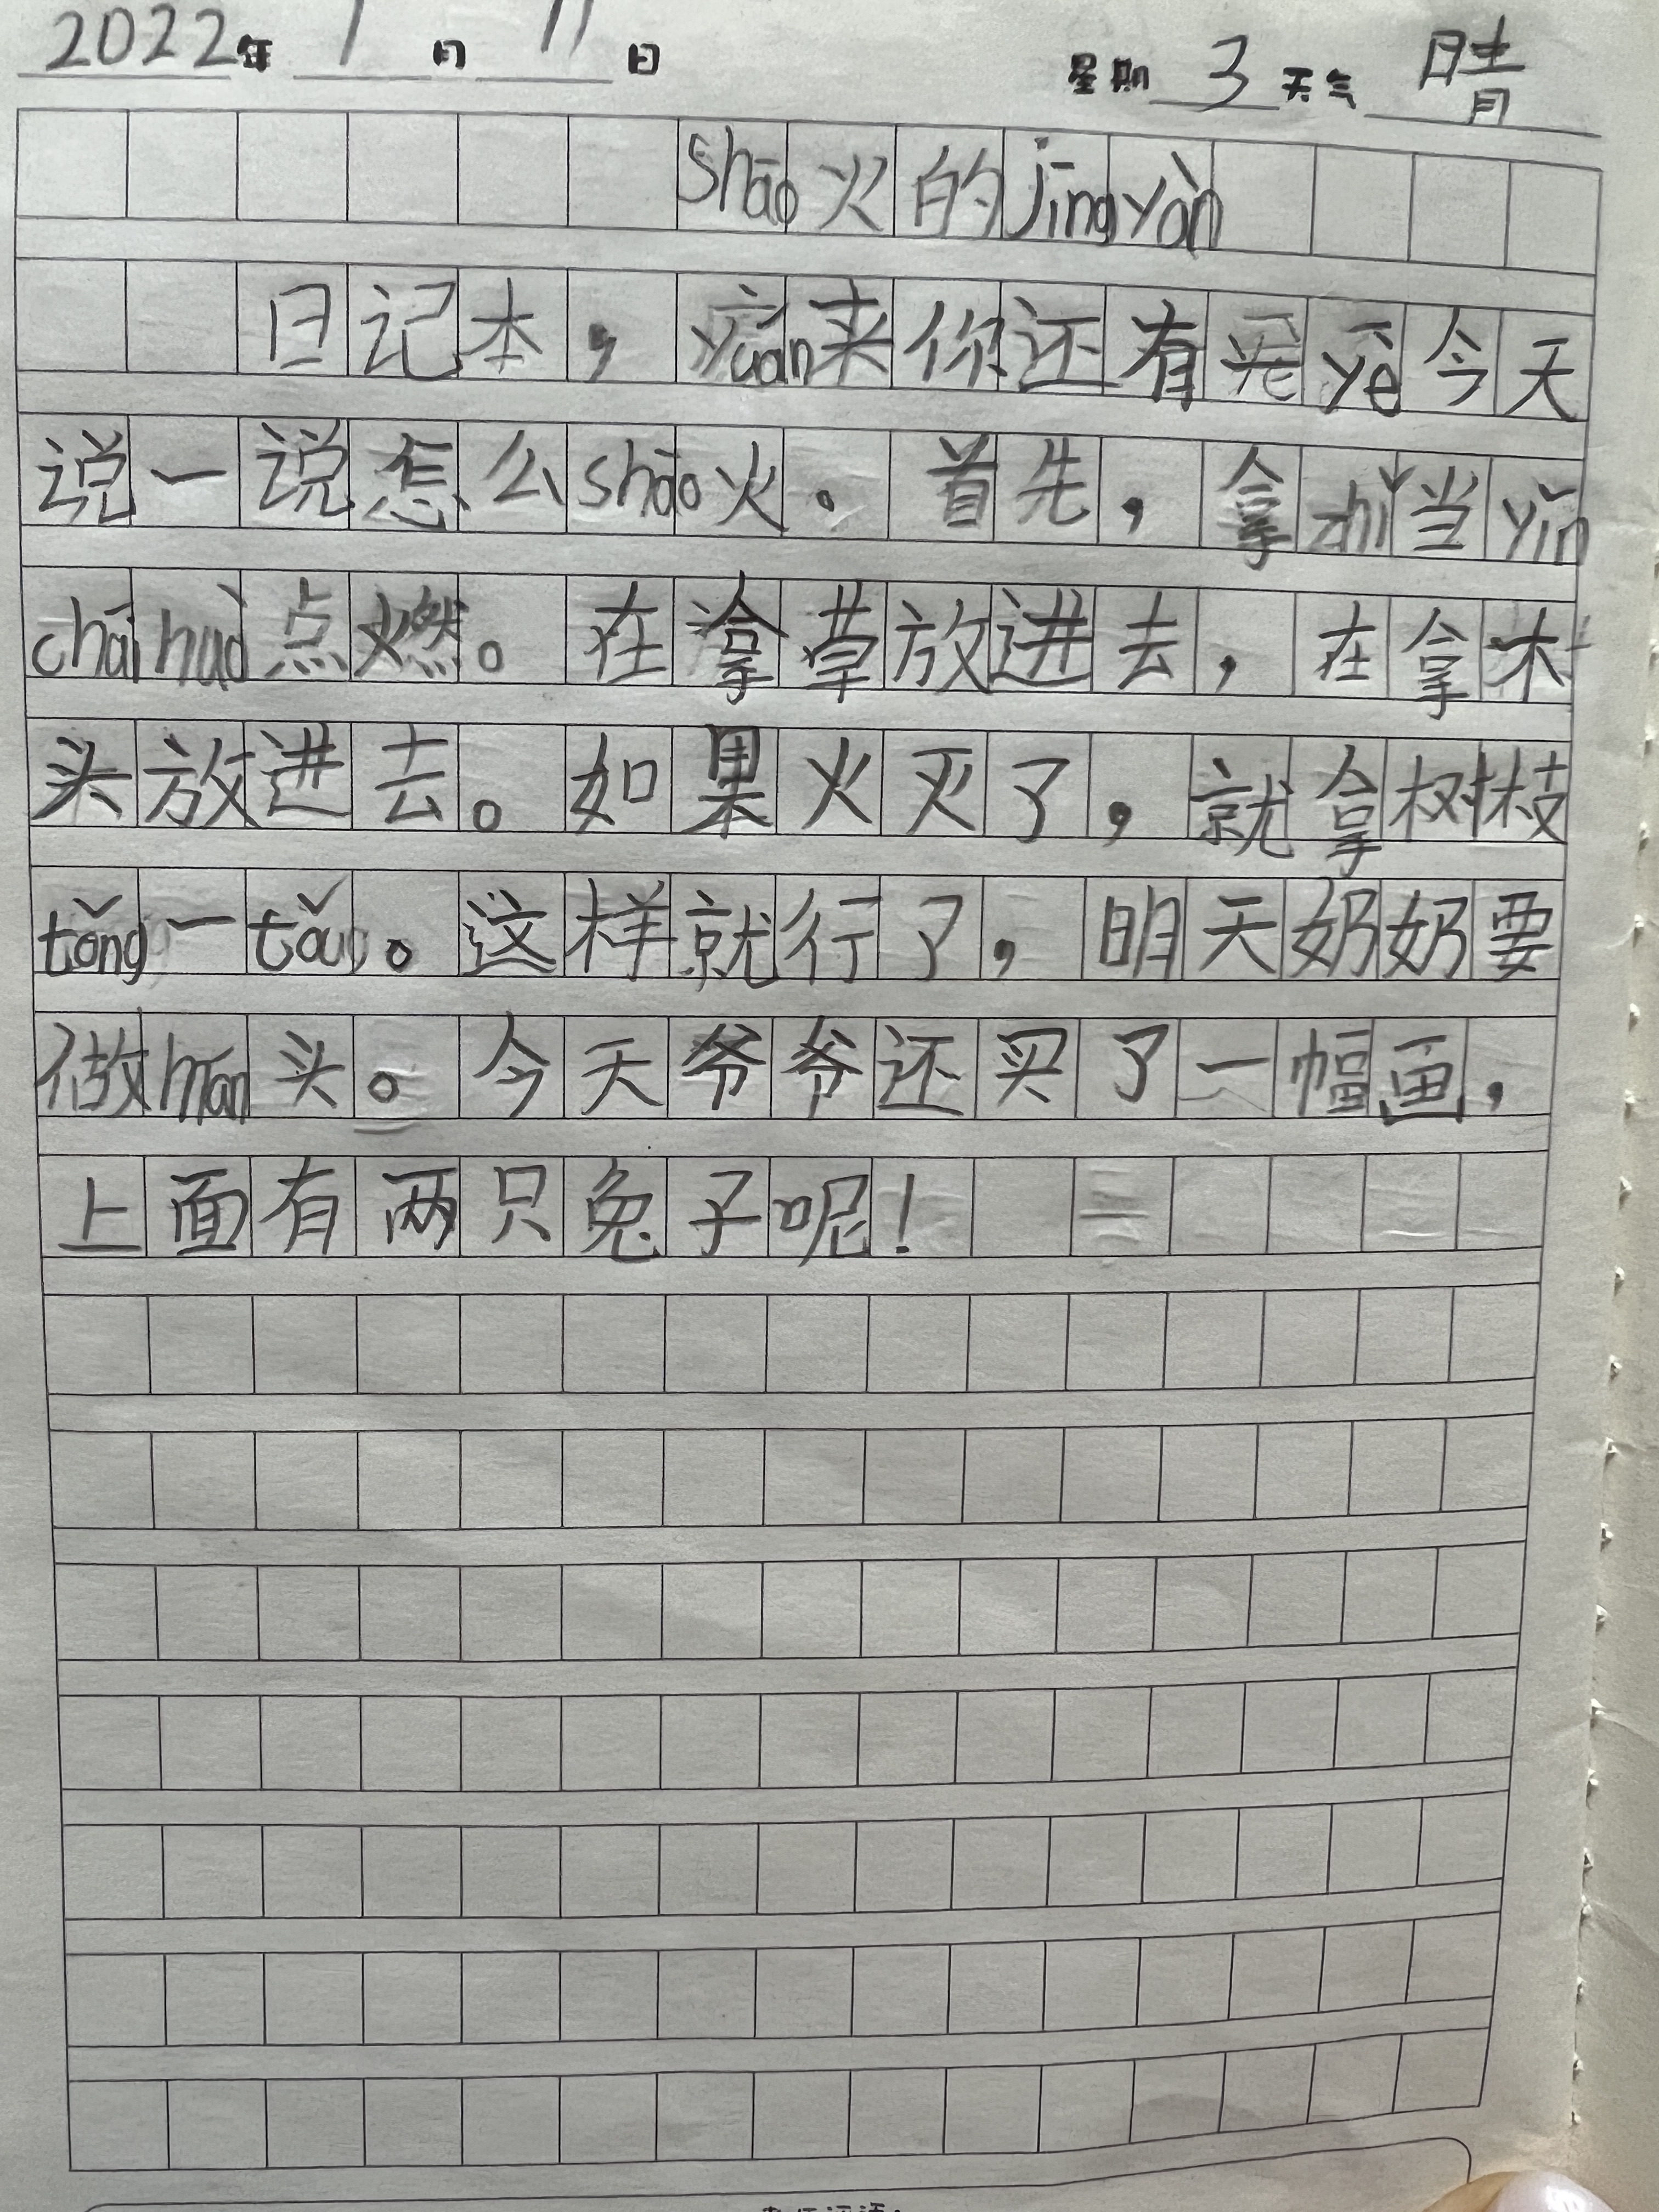 2022年 1 月 11 日 星期 3 天气 晴
shāo火的jīngyàn
日记本，yuán来你还有 yè今天
说一说怎么shāo火。首先，拿zhǐ当yǐn
chái huǒ点燃。在拿草放进去，在拿木
头放进去。如果火灭了，就拿树枝
tǒng一tǒu。这样就行了，明天奶奶要
做mán头。今天爷爷还买了一幅画，
上面有两只兔子呢！